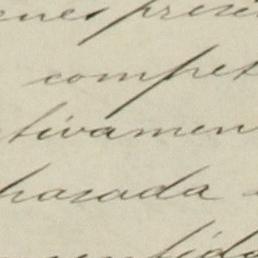 enes prese
compet
tivamen
hasada